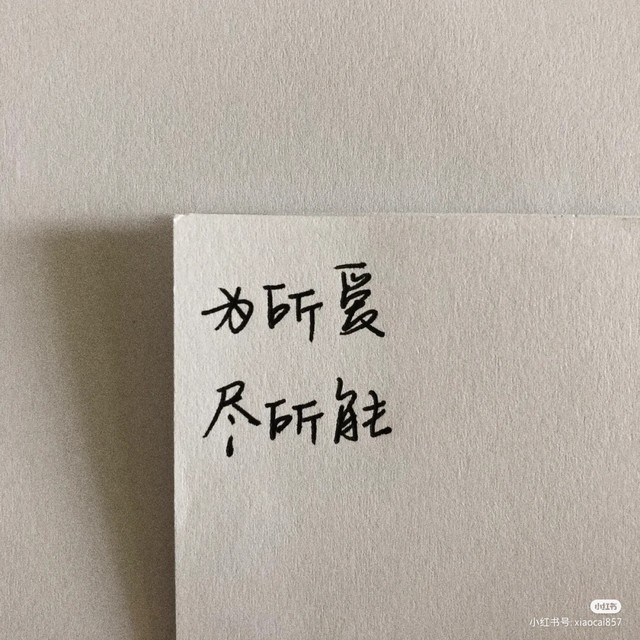 为所爱
尽所能
小红书
小红书号: xiaocai857